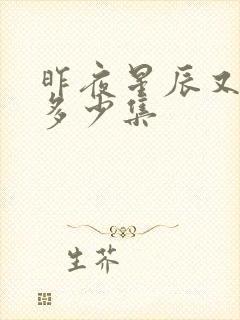 昨夜星辰又
多少集
生芥